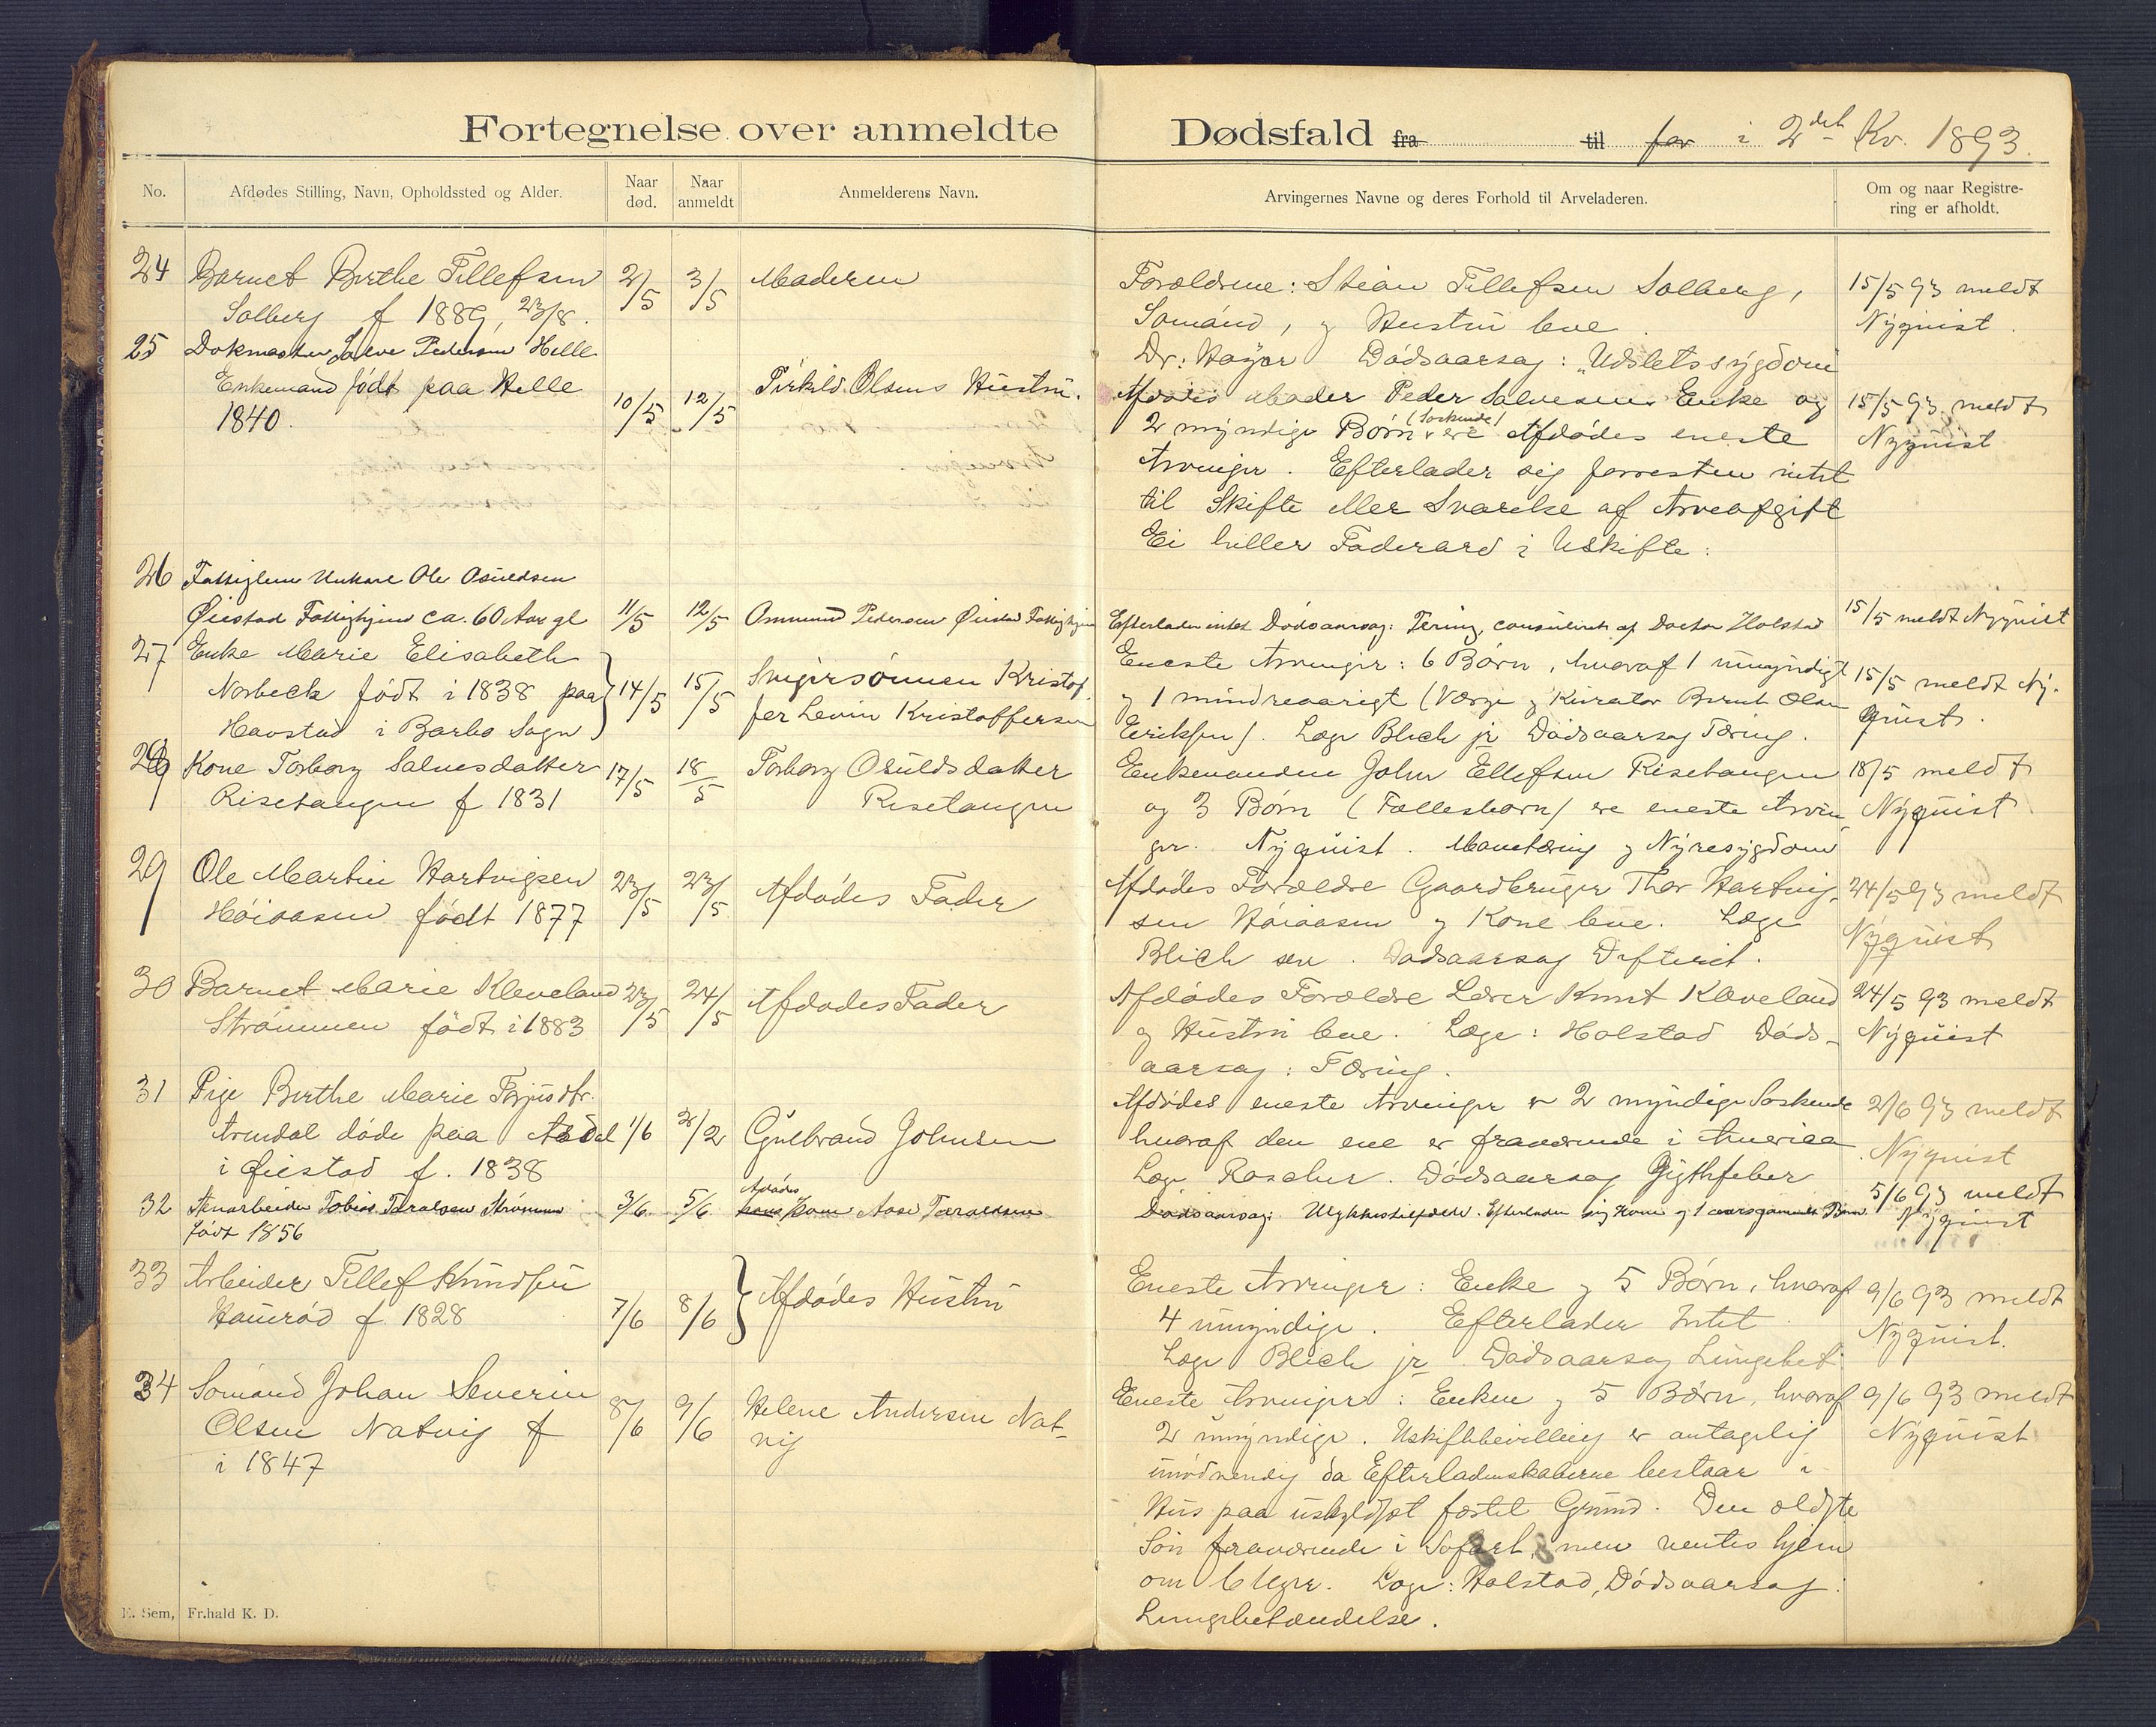 Fortegnelse over anmeldte Dødsfald fra til for i 2det Kv. 1893.
No. Afdødes Stilling, Navn, Opholdssted og Alder. Naar død. Naar anmeldt Anmelderens Navn. Arvingernes Navne og deres Forhold til Arveladeren. Om og naar Registrering er afholdt.
24 Barnet Birthe Tellefsen 2/5 3/5 Moderen
Solberg f 1889, 23/8.
Forældrene: Stian Tellefsen Solberg, 15/5 93 meldt
Sømand, og Hustru leve. Nyquist.
Dr: Høyer Dødsaarsag: Udsletssygdom
25 Dokmester Salve Pedersen Helle
Enkemand født paa Helle 10/5 12/5 Terkild Olsens Hustru.
1840.
Afdødes Moder Peder Salvesens Enke og 15/5 93 meldt
2 myndige Børn (Søskende) ere Afdødes eneste Nyquist
Arvinger. Efterlader sig forresten intet
til Skifte eller Svarelse af Arveafgift
Ei heller Faderarv i Uskifte.
26 Fattiglem Unkarl Ole Osuldsen
Øiestad Fattighjem ca. 60 Aar gl 11/5 12/5 Ommund Pedersen Øiestad Fattighjem
Efterlader intet Dødsaarsag: Tæring, consuleret af Doctor Holstad 15/5 meldt Nyquist
27 Enke Marie Elisabeth
Norbeck født i 1838 paa 14/5 15/5 Svigersønnen Kristof-
Havstad i Barbo Sogn fer Levin Kristoffersen
Eneste Arvinger: 6 Børn, hvoraf 1 umyndigt 15/5 meldt Ny-
og 1 mindreaarigt (Værge og Kurator Bernt Olsen quist.
Eriksen). Læge Blich jr Dødsaarsag Tæring.
28 Kone Torborg Salvesdatter 17/5 18/5 Torborg Osuldsdatter
Risetangen f 1831 Risetangen
Enkemanden John Ellefsen Risetangen 18/5 meldt
og 3 Børn (Fællesbørn) ere eneste Arvin- Nyquist
ger. Nyquist. Mavetæring og Nyresygdom
29 Ole Martin Hartvigsen 23/5 23/5 Afdødes Fader
Høiaasen født 1877
Afdødes Forældre Gaardbruger Thor Hartvig- 24/5 93 meldt
sen Høiaasen og Kone leve. Læge Nyquist
Blich sen. Dødsaarsag Difterit.
30 Barnet Marie Kleveland 23/5 24/5 Afdødes Fader
Strømmen født i 1883
Afdødes Forældre Lærer Knut Kleveland 24/5 93 meldt
og Hustru leve. Læge: Holstad Døds- Nyquist
aarsag: Tæring.
31 Pige Birthe Marie Terjusdtr.
Arendal døde paa Asdal 1/6 2/2 Gulbrand Johnsen
i Øiestad f. 1838
Afdødes eneste Arvinger er 2 myndige Søskende 2/6 93 meldt
hvoraf den ene er fraværende i America. Nyquist
Læge Roscher. Dødsaarsag Gigthfeber
32 Stenarbeider Tobias Taralsen Strømmen 3/6. 5/6. Afdødes Kone Aase Taraldsen
født 1856
Dødsaarsag: Ulykkestilfælde. Efterlader sig Kone og 1 aarsgammelt Barn. 5/6 93 meldt
Nyquist
33 Arbeider Tellef Knudsen
Haurød f 1828 7/6 8/6 Afdødes Hustru
Eneste Arvinger: Enke og 5 Børn, hvoraf 9/6 93 meldt
4 umyndige. Efterlader Intet. Nyquist.
Læge Blich jr Dødsaarsag Lungebet.
34 Sømand Johan Severin 8/6 9/6 Helene Andersen Nat-
Olsen Natvig f vig
i 1847
Eneste Arvinger: Enken og 5 Børn, hvoraf 9/6 93 meldt
2 umyndige. Uskiftebevilling er antagelig Nyquist
unødvendig da Efterladenskaberne bestaar i
Hus paa uskyldsat fæstet Grund. Den ældste
Søn fraværende i Søfart, men ventes hjem
om 6 Uger. Læge: Holstad, Dødsaarsag:
Lungebetændelse.
E. Sem, Fr.hald K. D.